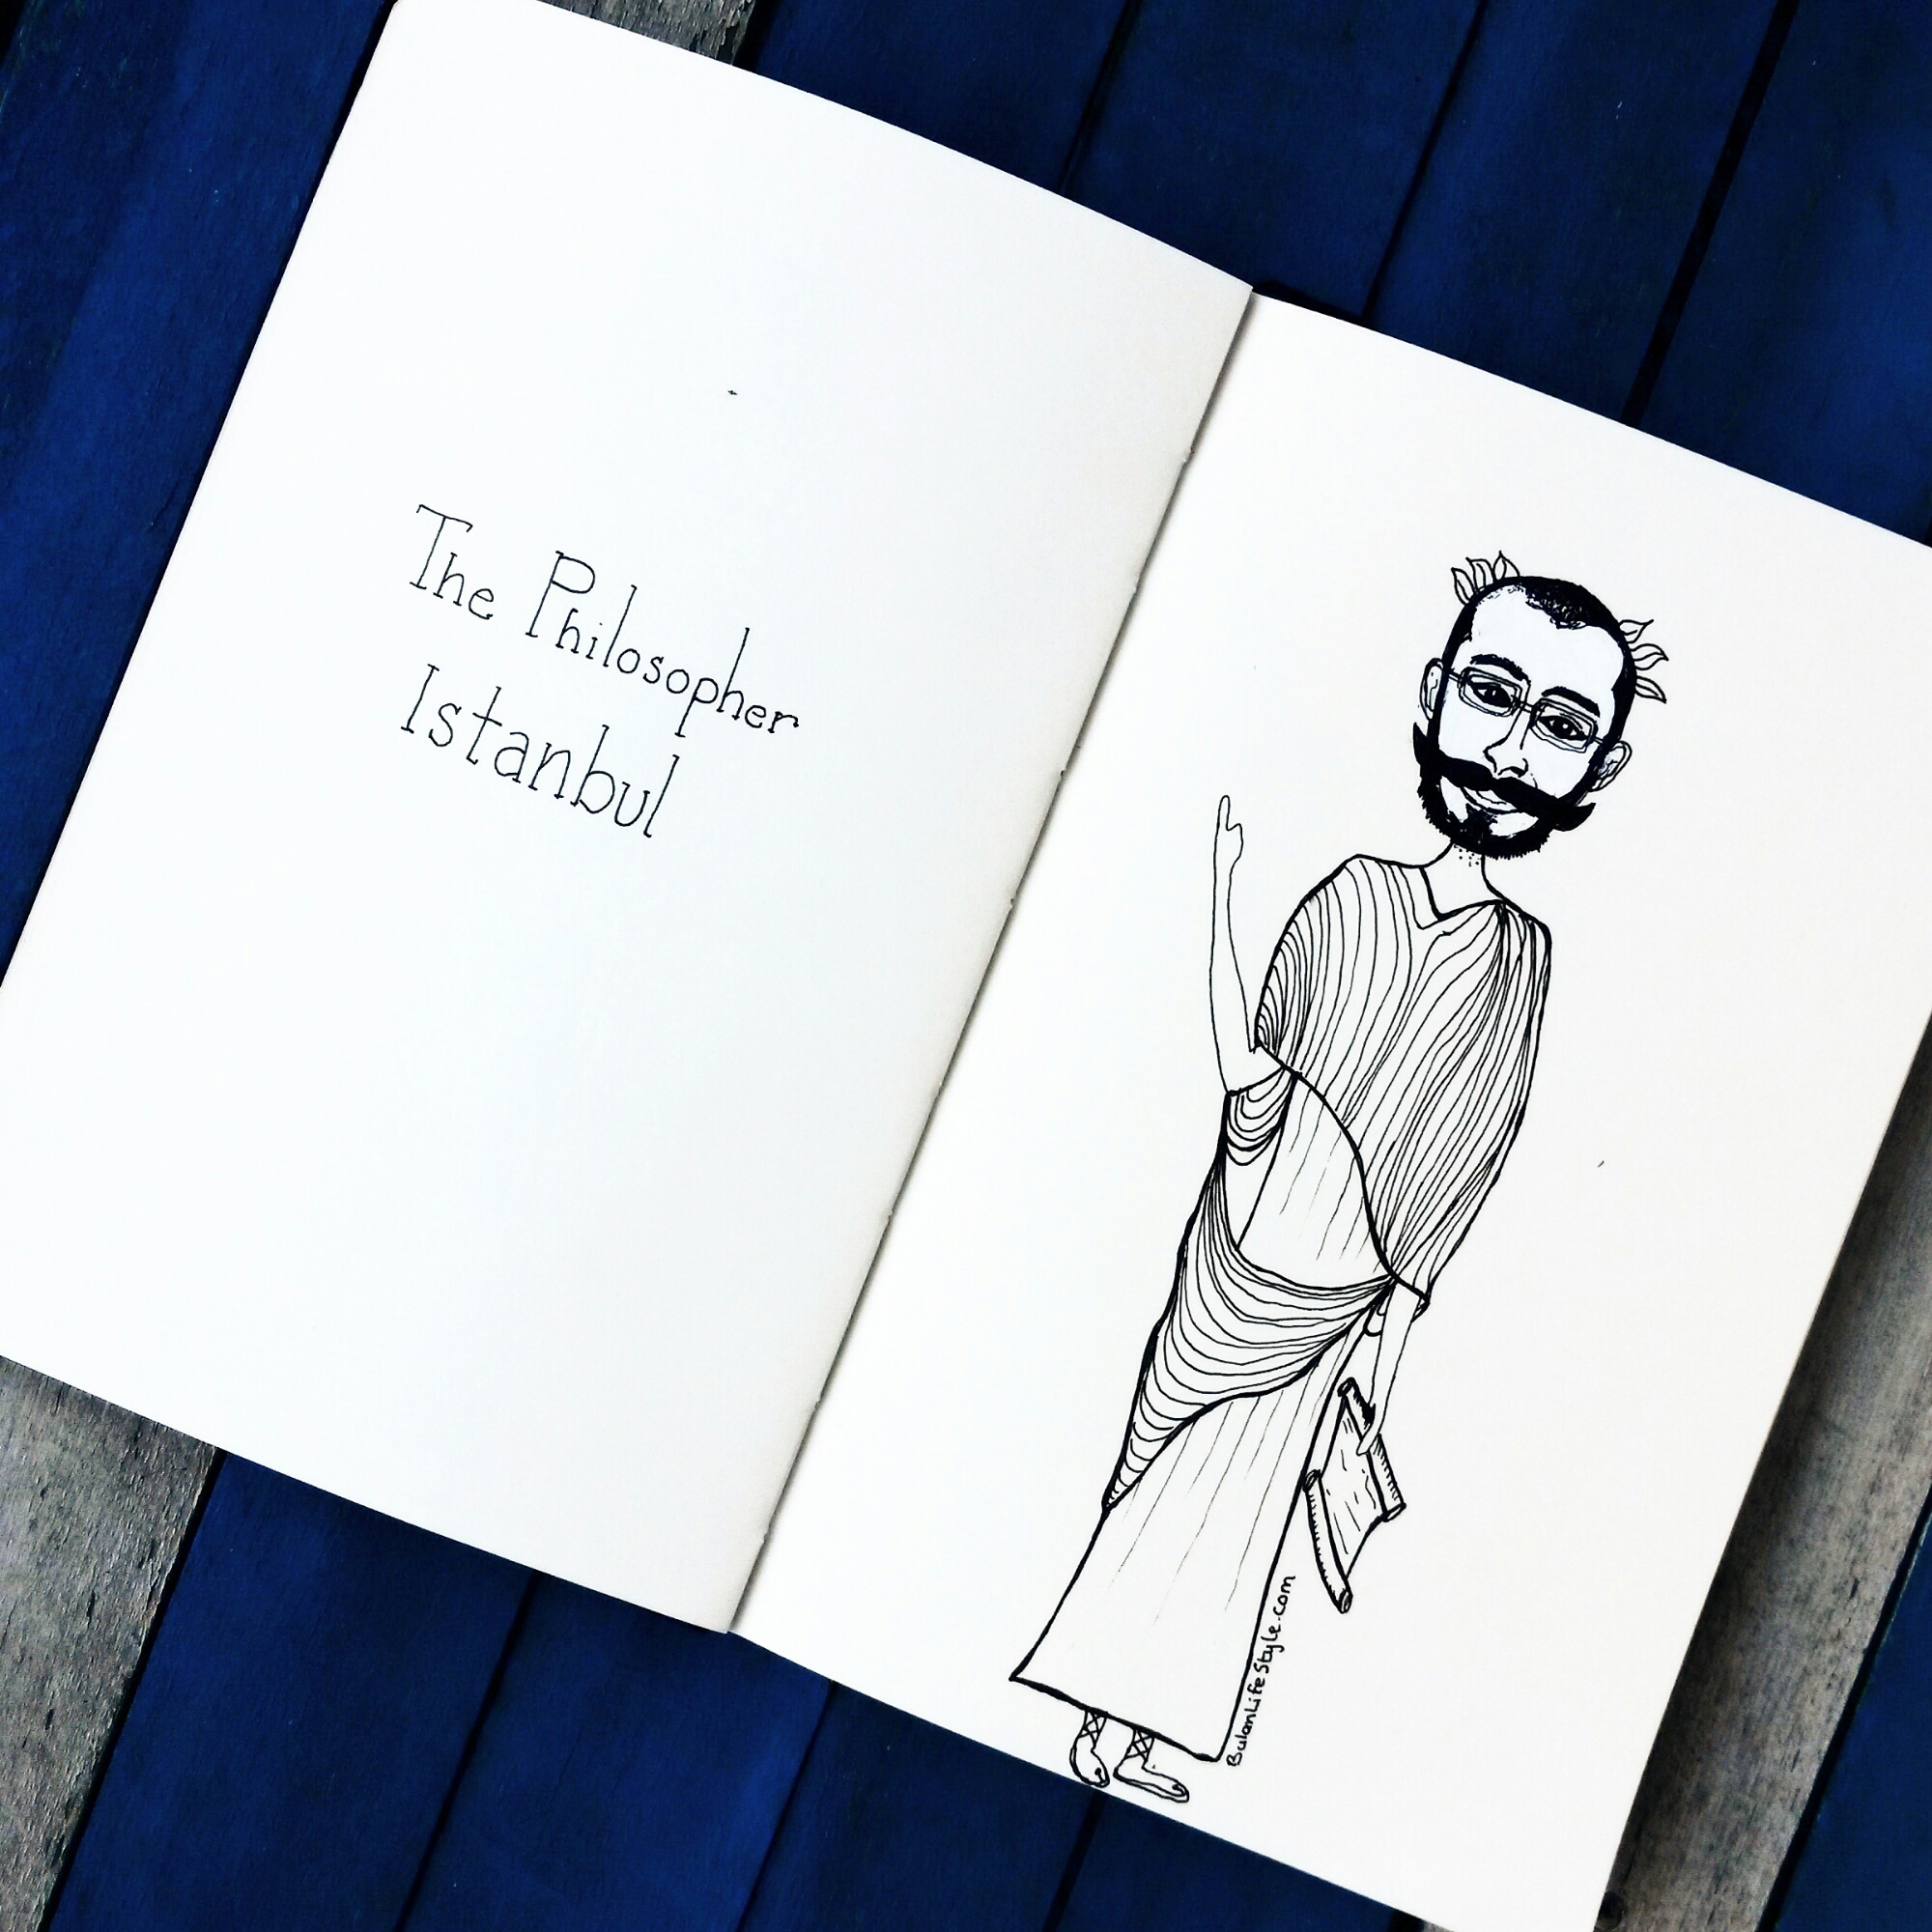 The Philosopher
Istanbul
BulanLifeStyle.com